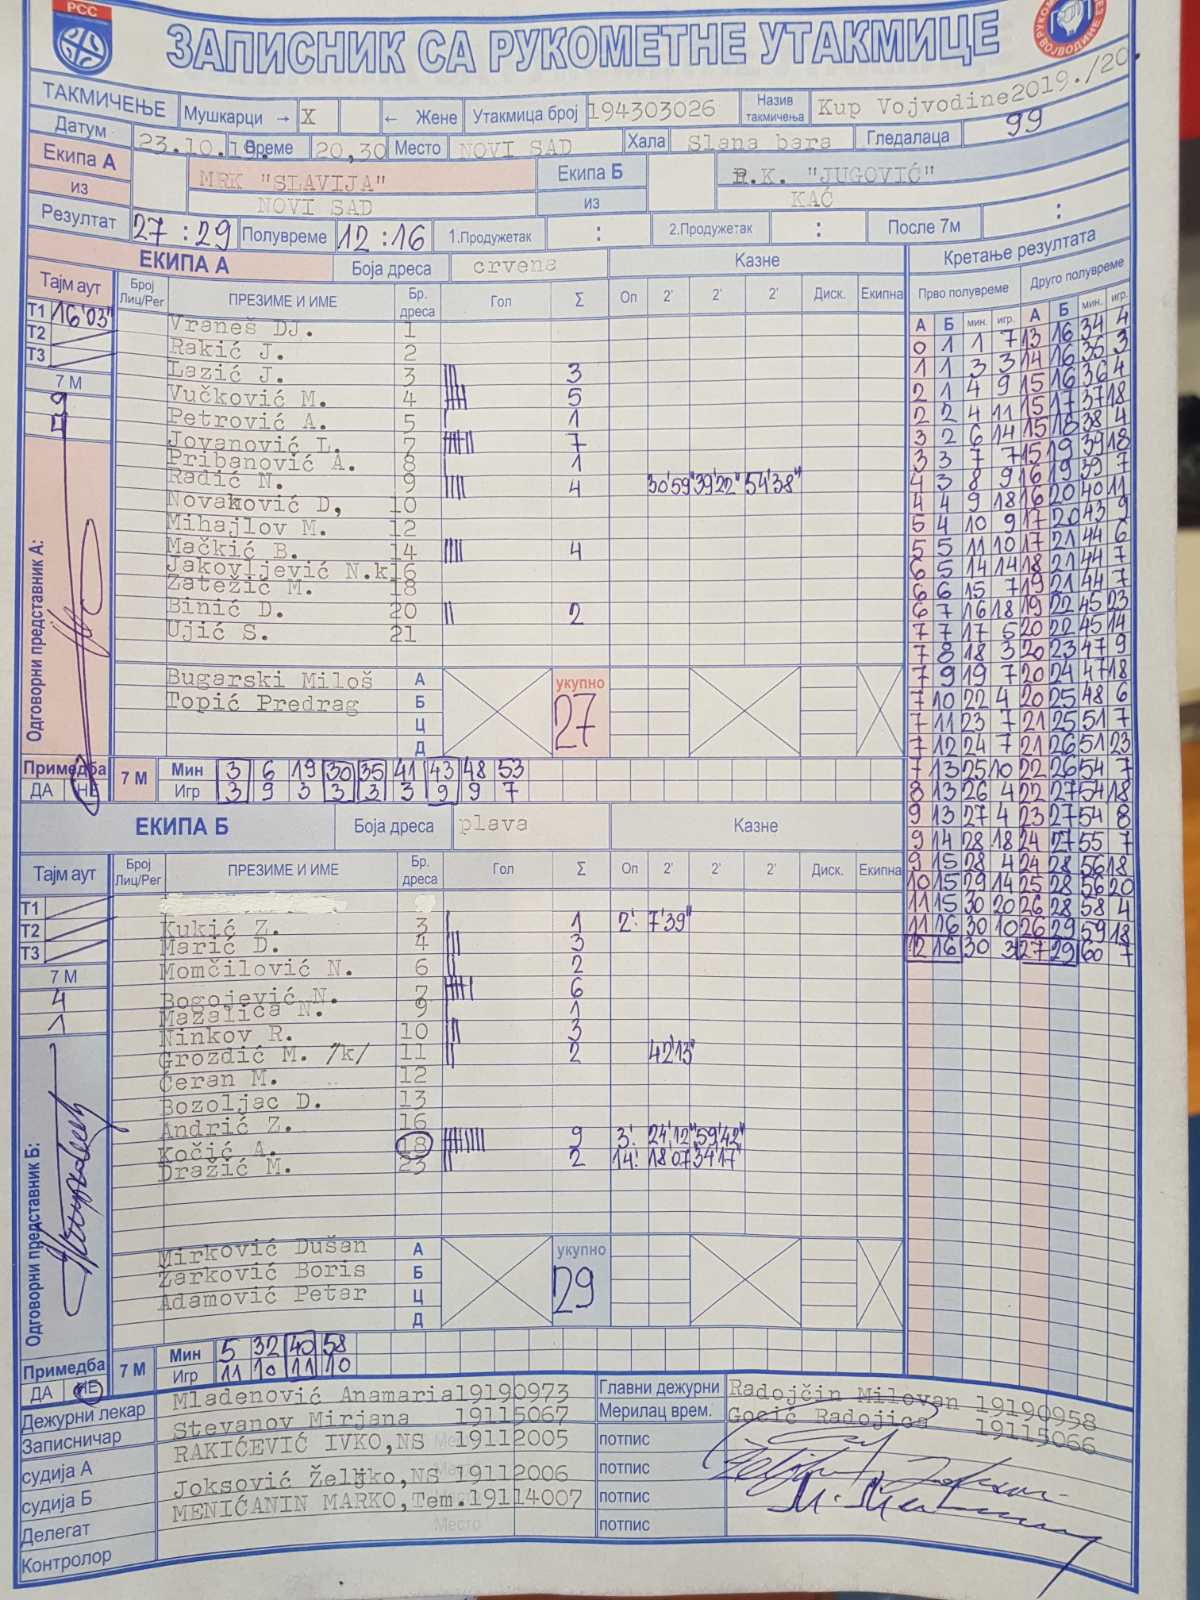 РСС
ЗАПИСНИК СА РУКОМЕТНЕ УТАКМИЦЕ
ТАКМИЧЕЊЕ Мушкарци → X ← Жене Утакмица број 194303026 Назив такмичења Kup Vojvodine2019./20.
Датум 23.10.19. Време 20,30 Место NOVI SAD Хала Slana bara Гледалаца 99
Екипа А MRK "SLAVIJA" Екипа Б R.K. "JUGOVIĆ"
из NOVI SAD из KAĆ
Резултат 27 : 29 Полувреме 12 : 16 1.Продужетак : 2.Продужетак : После 7м :
ЕКИПА А Боја дреса crvena Казне Кретање резултата
Тајм аут Број Лиц/Рег ПРЕЗИМЕ И ИМЕ Бр. дреса Гол Σ Оп 2' 2' 2' Диск. Екипна
Прво полувреме Друго полувреме
А Б мин. игр. А Б мин. игр.
T1 16'03"
T2
T3
7 М
9
4
Vraneš DJ. 1
Rakić J. 2
Lazić J. 3 3
Vučković M. 4 5
Petrović A. 5 1
Jovanović L. 7 7
Pribanović A. 8 1
Radić N. 9 4 30'59" 39'22" 54'38"
Novaković D, 10
Mihajlov M. 12
Mačkić B. 14 4
Jakovljević N.k16
Zatežić M. 18
Binić D. 20 2
Ujić S. 21
Bugarski Miloš А укупно
Topić Predrag Б 27
Ц
Д
Одговорни представник А:
Примедба ДА НЕ
7 М Мин 3 6 19 30 35 41 43 48 53
Игр 3 9 3 3 3 3 9 9 7
ЕКИПА Б Боја дреса plava Казне
Тајм аут Број Лиц/Рег ПРЕЗИМЕ И ИМЕ Бр. дреса Гол Σ Оп 2' 2' 2' Диск. Екипна
T1
T2
T3
7 М
4
1
Kukić Z. 3 1 2! 7'39"
Marić D. 4 3
Momčilović N. 6 2
Bogojević N. 7 6
Mazalica N. 9 1
Ninkov R. 10 3
Grozdić M. /k/ 11 2 42'13"
Ćeran M. 12
Bozoljac D. 13
Andrić Z. 16
Kočić A. 18 9 3! 24'12" 59'42"
Dražić M. 23 2 14! 18'07 34'17"
Mirković Dušan А укупно
Žarković Boris Б 29
Adamović Petar Ц
Д
Одговорни представник Б:
Примедба ДА НЕ
7 М Мин 5 32 40 58
Игр 11 10 11 10
0 1 1 7 13 16 34 4
1 1 3 3 14 16 35 3
2 1 4 9 15 16 36 4
2 2 4 11 15 17 37 18
3 2 6 14 15 18 38 4
3 3 7 7 15 19 39 18
4 3 8 9 16 19 39 7
4 4 9 18 16 20 40 11
5 4 10 9 17 20 43 9
5 5 11 10 17 21 44 6
6 5 14 14 18 21 44 7
6 6 15 7 19 21 44 7
6 7 16 18 19 22 45 23
7 7 17 5 20 22 45 14
7 8 18 3 20 23 47 9
7 9 19 7 20 24 47 18
7 10 22 4 20 25 48 6
7 11 23 7 21 25 51 7
7 12 24 7 21 26 51 23
7 13 25 10 22 26 54 7
8 13 26 4 22 27 54 18
9 13 27 4 23 27 54 8
9 14 28 18 24 27 55 7
9 15 28 4 24 28 56 18
10 15 29 14 25 28 56 20
11 15 30 20 26 28 58 4
11 16 30 10 26 29 59 18
12 16 30 3 27 29 60 7
Дежурни лекар Mladenović Anamaria19190973 Главни дежурни Radojčin Milovan 19190958
Записничар Stevanov Mirjana 19115067 Мерилац врем. Gocić Radojica 19115066
судија А RAKIĆEVIĆ IVKO,NS 19112005 потпис
судија Б Joksović Željko,NS 19112006 потпис
Делегат MENIĆANIN MARKO,Tem.19114007 потпис
Контролор Место потпис